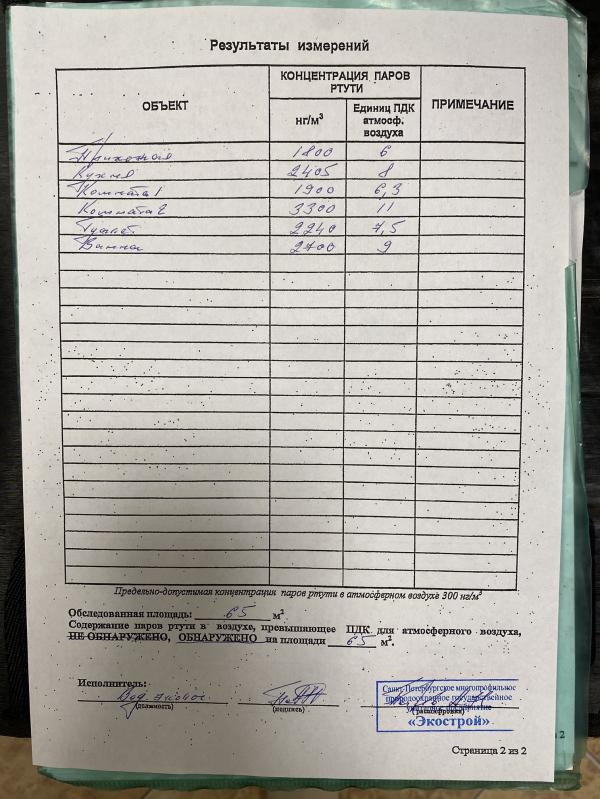 Результаты измерений
ОБЪЕКТ
КОНЦЕНТРАЦИЯ ПАРОВ РТУТИ
ПРИМЕЧАНИЕ
нг/м³
Единиц ПДК атмосф. воздуха
Прихожая 1800 6
Кухня 2405 8
Комната 1 1900 6,3
Комната 2 3300 11
Туалет 2240 7,5
Ванна 2700 9
Предельно-допустимая концентрация паров ртути в атмосферном воздухе 300 нг/м³
Обследованная площадь 65 м²
Содержание паров ртути в воздухе, превышающее ПДК для атмосферного воздуха,
НЕ ОБНАРУЖЕНО, ОБНАРУЖЕНО на площади 65 м².
Исполнитель:
(должность) (подпись) (расшифровка)
Санкт-Петербургское многопрофильное
природоохранное государственное
«Экострой»
Страница 2 из 2